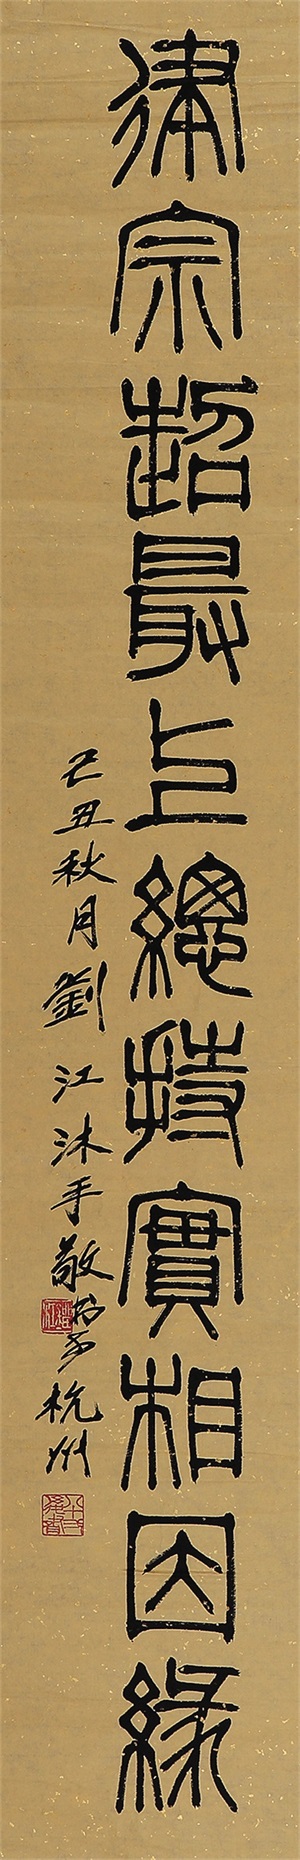 律宗超最上總持實相因緣
己丑秋月劉江沐手敬書于杭州